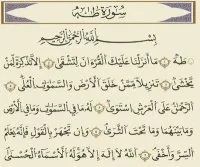 سُورَةُ طه
بِسْمِ اللَّهِ الرَّحْمَٰنِ الرَّحِيمِ
طه مَا أَنزَلْنَا عَلَيْكَ الْقُرْءَانَ لِتَشْقَىٰ إِلَّا تَذْكِرَةً لِّمَن
يَخْشَىٰ تَنزِيلًا مِّمَّنْ خَلَقَ الْأَرْضَ وَالسَّمَٰوَٰتِ الْعُلَى
الرَّحْمَٰنُ عَلَى الْعَرْشِ اسْتَوَىٰ لَهُ مَا فِي السَّمَٰوَٰتِ وَمَا فِي الْأَرْضِ
وَمَا بَيْنَهُمَا وَمَا تَحْتَ الثَّرَىٰ وَإِن تَجْهَرْ بِالْقَوْلِ فَإِنَّهُ يَعْلَمُ
السِّرَّ وَأَخْفَى اللَّهُ لَا إِلَٰهَ إِلَّا هُوَ لَهُ الْأَسْمَاءُ الْحُسْنَىٰ